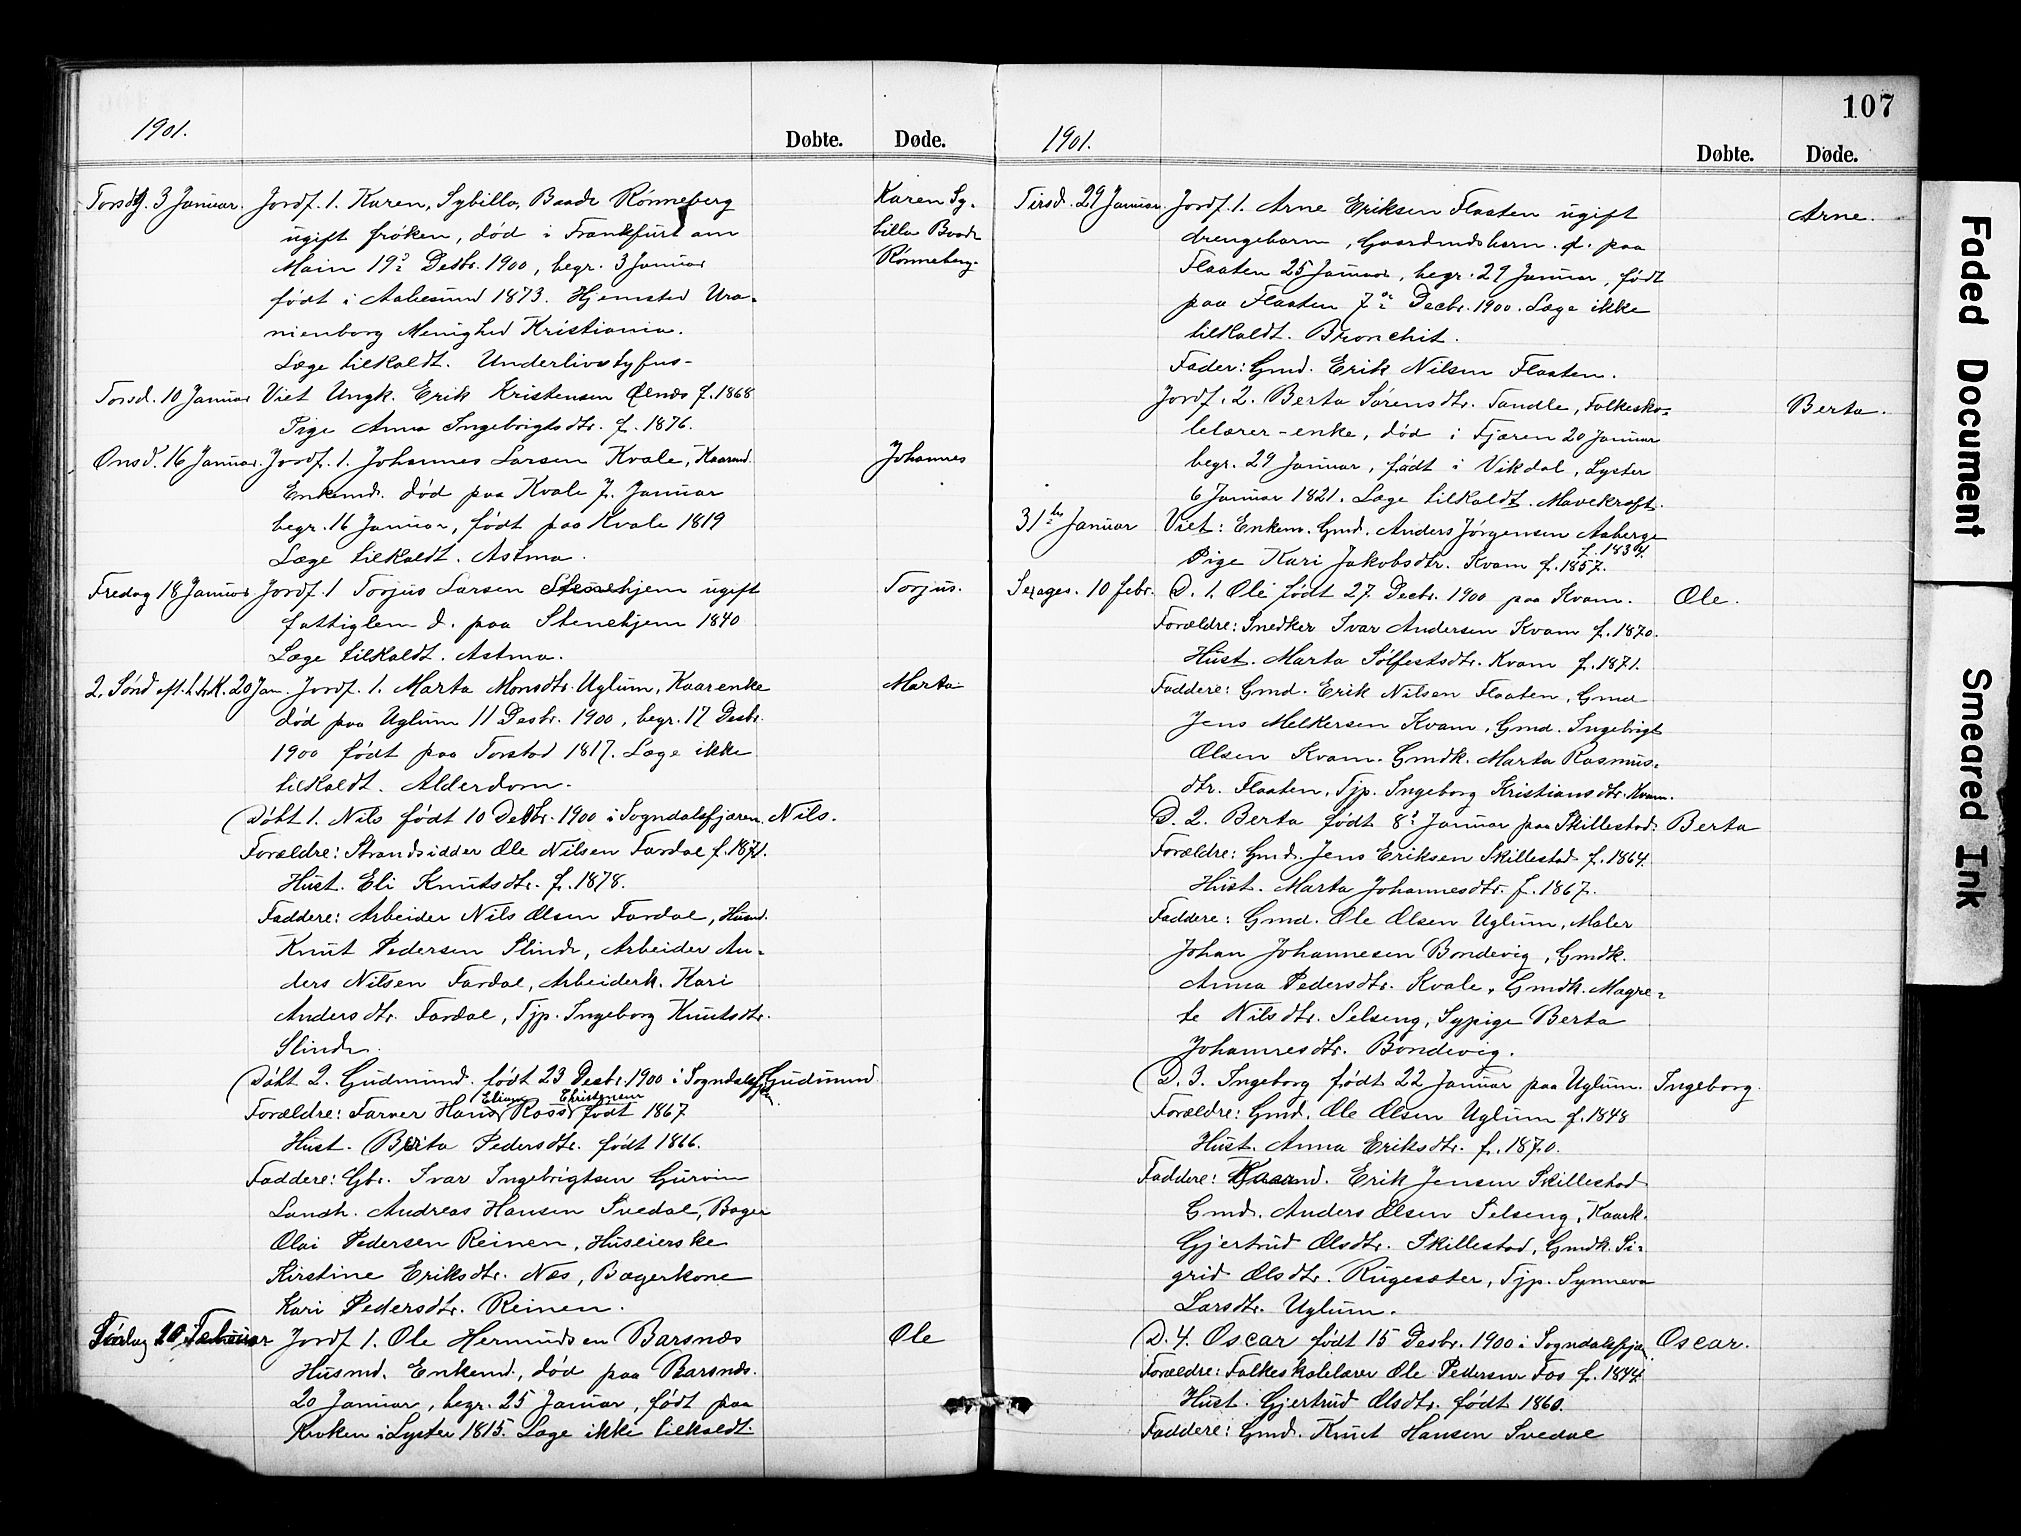 1901.
Døbte.
Døde.
Torsdg. 3 Januar. Jordf. 1. Karen, Sybilla, Baade Rønneberg
Karen Sy-
ugift frøken, død i Frankfurt am
billa Baade
Main 19de Desbr. 1900, begr. 3 Januar
Rønneberg.
født i Aalesund 1873. Hjemsted Ura-
nienborg Menighed Kristiania.
Læge tilkaldt. Underlivstyfus-
Torsd. 10 Januar Viet Ungk. Erik Kristensen Ølnæs f. 1868
Pige Anna Ingebrigtsdtr. f. 1876.
Onsd. 16 Januar. Jordf. 1. Johannes Larsen Kvale, Kaarmd.
Johannes
Enkemd. død paa Kvale 7. Januar
begr. 16 Januar, født paa Kvale 1819
Læge tilkaldt. Astma.
Fredag 18 Januar Jordf. 1 Torjus Larsen Stenehjem ugift
Torjus.
fattiglem d. paa Stenehjem 1840
Læge tilkaldt. Astma.
2. Sønd eft. h.3.K. 20 Jan. Jordf. 1. Marta Monsdtr. Uglum, Kaarenke
Marta
død paa Uglum 11 Desbr. 1900, begr. 17 Desbr.
1900 født paa Torstad 1817. Læge ikke
tilkaldt. Alderdom.
Døbt 1. Nils født 10 Desbr. 1900 i Sogndalsfjæren. Nils.
Forældre: Strandsidder Ole Nilsen Fardal f. 1871.
Hust. Eli Knutsdtr. f. 1878.
Faddere: Arbeider Nils Olsen Fardal, Husmd.
Knut Pedersen Slinde, Arbeider An-
ders Nilsen Fardal, Arbeiderk. Kari
Andersdtr. Fardal, Tjp. Ingeborg Knutsdtr.
Slinde.
Døbt 2. Gudmund. født 23 Desbr. 1900 i Sogndalsfjæren Gudmund
Forældre: Farver Hans Eliam Ross Christensen født 1867
Hust. Berta Pedersdtr. født 1866.
Faddere: Gbr. Ivar Ingebrigtsen Gurvin
Landh. Andreas Hansen Svedal, Bager
Olai Pedersen Reinen, Huseierske
Kirstine Eriksdtr. Næs, Bagerkone
Kari Pedersdtr. Reinen.
Jordf 1. Ole Hermundsen Barsnæs
Ole
Husmd. Enkemd., død paa Barsnæs.
20 Januar, begr. 25 Januar, født paa
Kroken i Lyster 1815. Læge ikke tilkaldt.
107
1901.
Døbte.
Døde.
Tirsd. 29 Januar. Jordf. 1. Arne Eriksen Flaaten ugift
Arne.
drengebarn, Gaardmdsbarn. d. paa
Flaaten 25 Januar, begr. 29 Januar, født
paa Flaaten 7de Decbr. 1900. Læge ikke
tilkaldt. Bronchit.
Fader: Gmd. Erik Nilsen Flaaten.
Jordf. 2. Berta Sørensdtr. Tandle, Folkesko-
Berta.
lelærer-enke, død i Fjæren 20 Januar
begr. 29 Januar, født i Vikdal, Lyster
6 Januar 1821. Læge tilkaldt. Mavekræft.
31te Januar Viet: Enkem. Gmd. Anders Jørgensen Aaberge
f. 1834.
Pige Kari Jakobsdtr. Kvam f. 1857.
Sexages. 10 febr. D. 1. Ole født 27 Decbr. 1900 paa Kvam. Ole.
Forældre: Snedker Ivar Andersen Kvam f. 1870.
Hust. Marta Sølfestsdtr. Kvam f. 1871.
Faddere: Gmd. Erik Nilsen Flaaten, Gmd
Jens Melkersen Kvam, Gmd. Ingebrigt
Olsen Kvam. Gmdk. Marta Rasmus-
dtr. Flaaten, Tjp. Ingeborg Kristiansdtr. Kvam.
D. 2. Berta født 8de Januar paa Skillestad. Berta
Forældre: Gmd. Jens Eriksen Skillestad f. 1864.
Hust. Marta Johannesdtr. f. 1867.
Faddere: Gmd. Ole Olsen Uglum, Maler
Johan Johannesen Bondevig, Gmdk.
Anna Pedersdtr. Kvale, Gmdk. Magre-
te Nilsdtr. Selseng, Sypige Berta
Johannesdtr. Bondevig.
D. 3. Ingeborg født 22 Januar paa Uglum. Ingeborg.
Forældre: Gmd. Ole Olsen Uglum f. 1848
Hust. Anna Eriksdtr. f. 1870.
Faddere: Kaarmd. Erik Jensen Skillestad
Gmd. Anders Olsen Selseng, Kaark.
Gjertrud Olsdtr. Skillestad, Gmdk. Si-
grid Olsdtr. Rugesæter, Tjp. Synneva
Larsdtr. Uglum.
D. 4. Oscar født 15 Desbr. 1900 i Sogndalsfjæ. Oscar.
Forældre: Folkeskolelærer Ole Pedersen Fos f. 1844.
Hust. Gjertrud Olsdtr. født 1860.
Faddere: Gmd. Knut Hansen Svedal
Faded Document
Smeared Ink